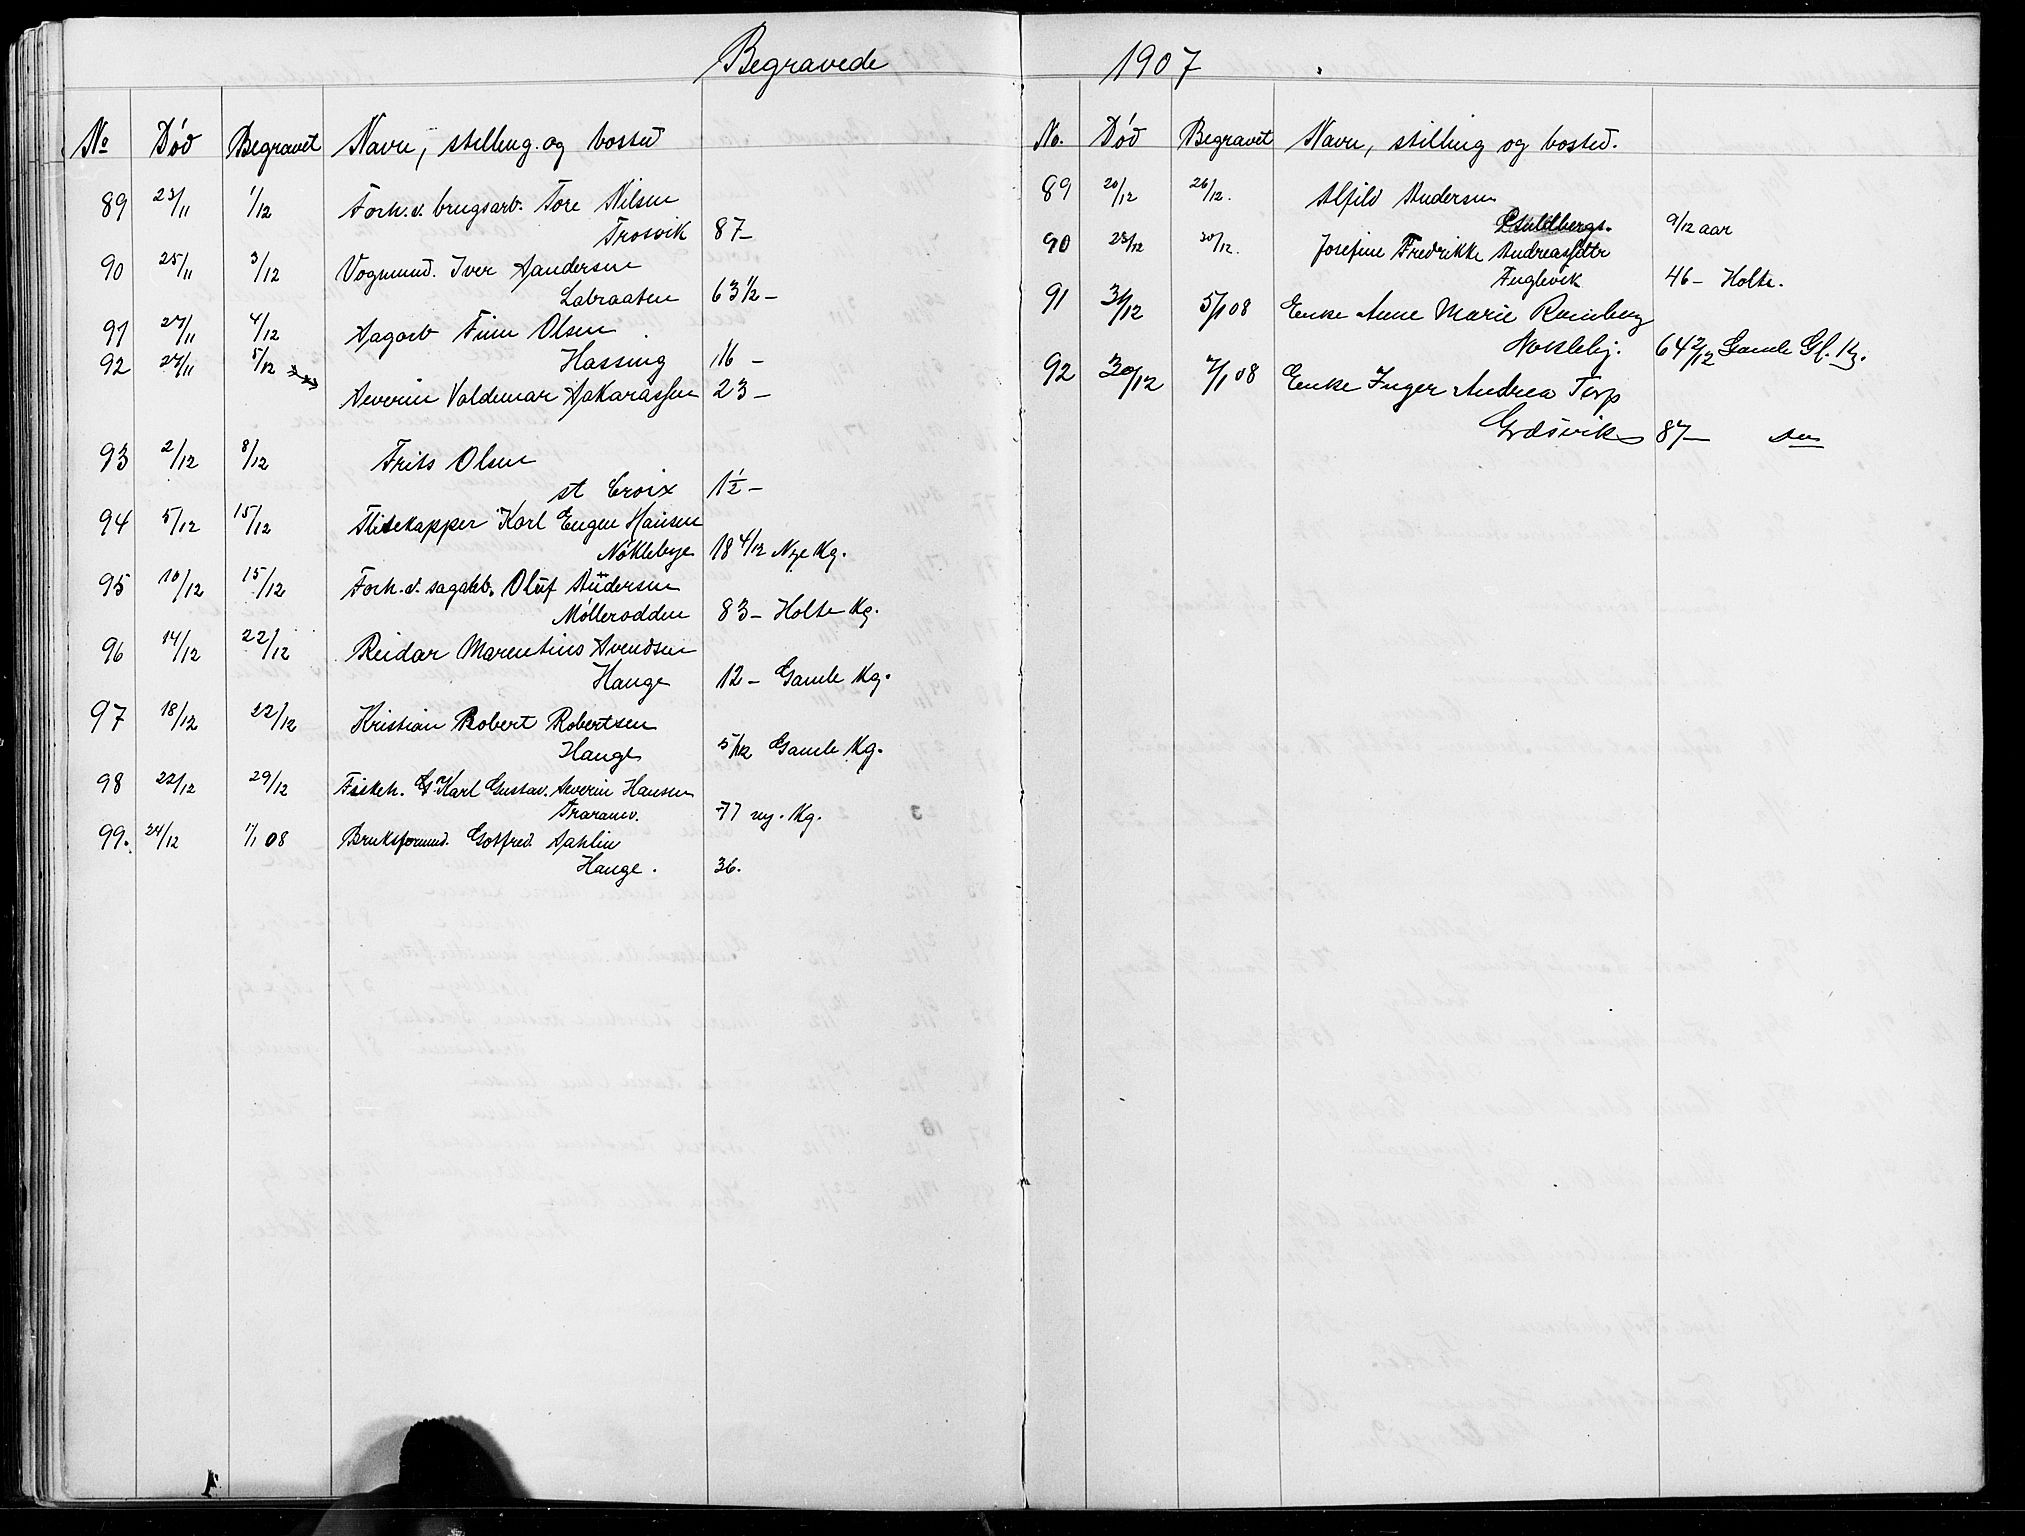 Begravede
No Død Begravet Navn, stilling og bosted
89 23/11 1/12 Forh.v. brugsarb. Tore Nilsen
Trosvik 87 –
90 25/11 3/12 Vognmand. Iver Andersen
Labraaten 63 1/2 –
91 27/11 4/12 Finn Olsen
Hassing 16 –
92 27/11 5/12
Severin Valdemar 23 –
93 2/12 8/12 Frits Olsen
st Croix 1 1/2 –
94 5/12 15/12 Karl Eugen Hansen
Nøklebye 18 4/12 Nye Kg.
95 10/12 15/12 Forh.v. sagarb. Oluf Andersen
Møllerodden 83 – Holte Kg.
96 14/12 22/12 Reidar Marentius Svendsen
Hauge 12 – Gamle Kg.
97 18/12 22/12 Kristian Robert Robertsen
Hauge 5/12 Gamle Kg.
98 22/12 29/12 Karl Gustav Severin Hansen
Traranv. 77 ny. Kg.
99. 24/12 1/1 08 Bruksformand. Gotfred Sahlin
Hauge. 36.
1907
No. Død Begravet Navn, stilling og bosted.
89 20/12 26/12. Alfild Andersen
9/12 aar
90 23/12 30/12. Josefine Fredrikke Andreasfdtr
Fuglevik 46 – Holte.
91 5/1 08 Enke Anne Marie
Nøkleby. 64 2/12 Gamle Gl. Kg.
92 30/12 7/1 08 Enke Inger Andrea Torp
Græsvik 87 –